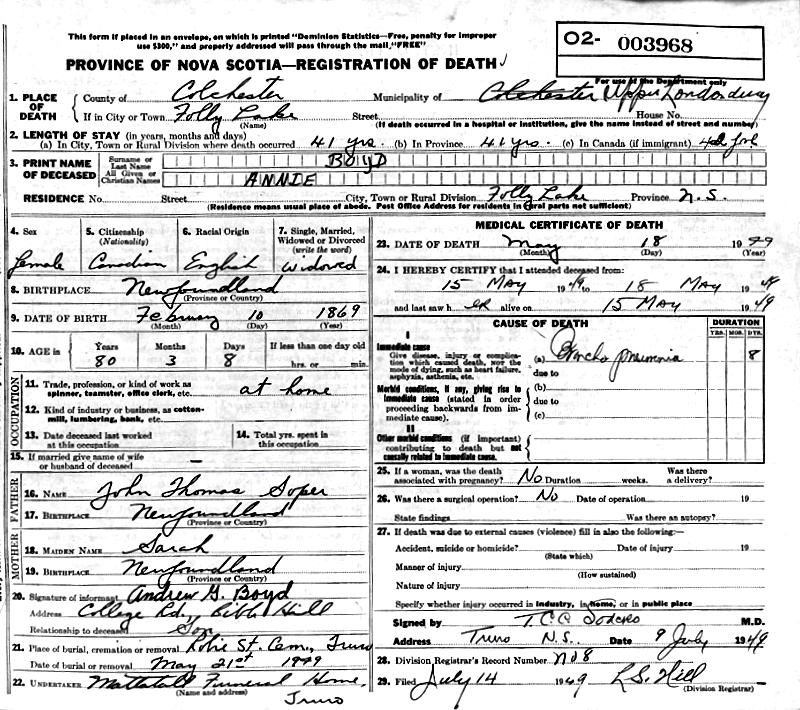 This form if placed in an envelope, on which is printed "Dominion Statistics—Free, penalty for improper
use $300," and properly addressed will pass through the mail, "FREE"
O2- 003968
PROVINCE OF NOVA SCOTIA—REGISTRATION OF DEATH
For use of the Department only
1. PLACE OF DEATH County of Colchester Municipality of Colchester Upper Londonderry
If in City or Town Folly Lake Street House No.
(Name) (If death occurred in a hospital or institution, give the name instead of street and number)
2. LENGTH OF STAY (in years, months and days)
(a) In City, Town or Rural Division where death occurred 41 yrs. (b) In Province 41 yrs. (c) In Canada (if immigrant)
3. PRINT NAME OF DECEASED Surname or Last Name BOYD
All Given or Christian Names ANNIE
RESIDENCE No. Street City, Town or Rural Division Folly Lake Province N.S.
(Residence means usual place of abode. Post Office Address for residents in rural parts not sufficient)
4. Sex 5. Citizenship (Nationality) 6. Racial Origin 7. Single, Married, Widowed or Divorced (write the word)
female Canadian English widowed
8. BIRTHPLACE Newfoundland
(Province or Country)
9. DATE OF BIRTH February 10 1869
(Month) (Day) (Year)
10. AGE in Years Months Days If less than one day old
80 3 8 hrs. or min.
OCCUPATION
11. Trade, profession, or kind of work as spinner, teamster, office clerk, etc. at home
12. Kind of industry or business, as cotton-mill, lumbering, bank, etc.
13. Date deceased last worked at this occupation 14. Total yrs. spent in this occupation
15. If married give name of wife or husband of deceased —
FATHER
16. NAME John Thomas Soper
17. BIRTHPLACE Newfoundland
(Province or Country)
MOTHER
18. MAIDEN NAME Sarah
19. BIRTHPLACE Newfoundland
(Province or Country)
20. Signature of informant Andrew G. Boyd
Address College Rd, Bible Hill
Relationship to deceased Son
21. Place of burial, cremation or removal Robie St. Cem., Truro
Date of burial or removal May 21st 1949
22. UNDERTAKER Mattatall Funeral Home,
(Name and address) Truro
MEDICAL CERTIFICATE OF DEATH
23. DATE OF DEATH May 18 1949
(Month) (Day) (Year)
24. I HEREBY CERTIFY that I attended deceased from:
15 May 1949 to 18 May 1949
and last saw h er alive on 15 May 1949
CAUSE OF DEATH DURATION
YRS. MOS. DYS.
I
Immediate cause
Give disease, injury or complication which caused death, not the mode of dying, such as heart failure, asphyxia, asthenia, etc.
(a) Broncho pneumonia 8
due to
Morbid conditions, if any, giving rise to immediate cause (stated in order proceeding backwards from immediate cause).
(b)
due to
(c)
II
Other morbid conditions (if important) contributing to death but not causally related to immediate cause.
25. If a woman, was the death associated with pregnancy? No Duration weeks. Was there a delivery?
26. Was there a surgical operation? No Date of operation 19
State findings Was there an autopsy?
27. If death was due to external causes (violence) fill in also the following:—
Accident, suicide or homicide? Date of injury 19
(State which)
Manner of injury
(How sustained)
Nature of injury
Specify whether injury occurred in industry, in home, or in public place
Signed by T.C.C. M.D.
Address Truro N.S. Date 9 July 1949
28. Division Registrar's Record Number No 8
29. Filed July 14 1949 L.S. Hill
(Division Registrar)